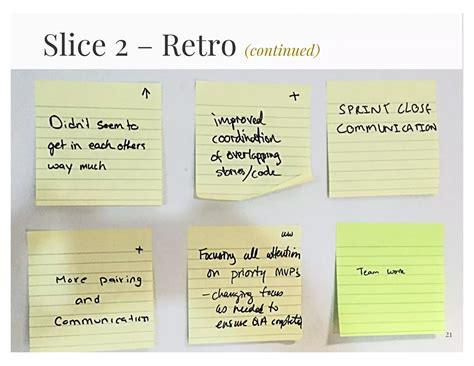 Slice 2 – Retro (continued)
↑
Didn't seem to
get in each others
way much
+
improved
coordination
of overlapping
stories/code
SPRINT CLOSE
COMMUNICATION
+
More pairing
and
Communication
Focusing all attention
on priority MVPs
- changing focus
as needed to
ensure QA completed
Team work
21